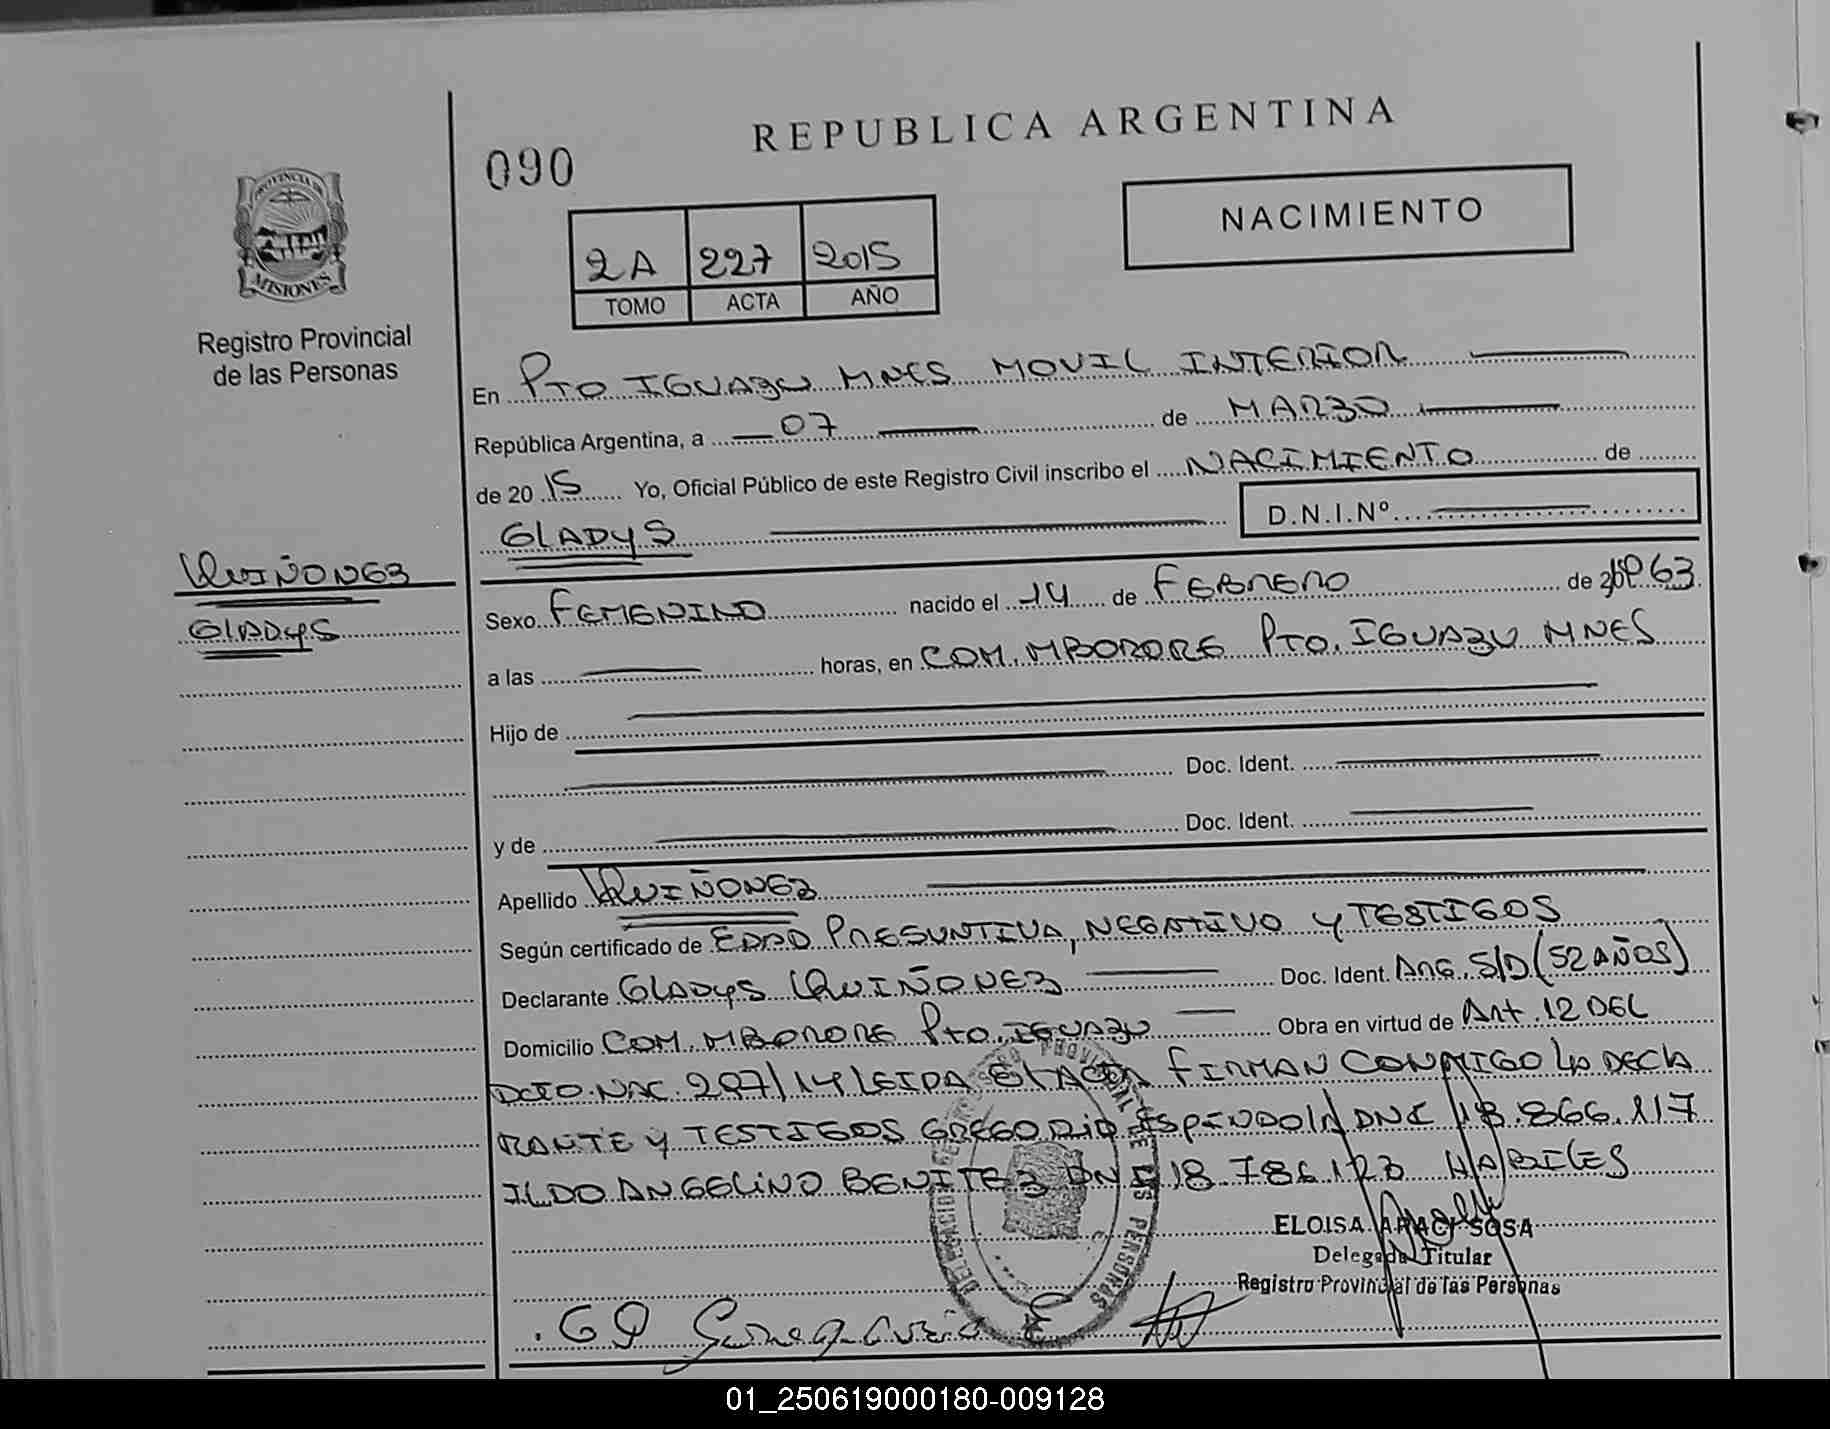 REPUBLICA ARGENTINA
090
NACIMIENTO
PROVINCIA DE
MISIONES
Registro Provincial
de las Personas
2A 227 2015
TOMO ACTA AÑO
En PTO IGUAZU MNES MOVIL INTERIOR
República Argentina, a 07 de MARZO
de 2015 Yo, Oficial Público de este Registro Civil inscribo el NACIMIENTO de
GLADYS D.N.I.Nº
QUIÑONEZ
GLADYS
Sexo FEMENINO nacido el 14 de FEBRERO de 1963
a las horas, en COM. MBORORE PTO. IGUAZU MNES
Hijo de
Doc. Ident.
y de Doc. Ident.
Apellido QUIÑONEZ
Según certificado de EDAD PRESUNTIVA, NEGATIVO Y TESTIGOS
Declarante GLADYS QUIÑONEZ Doc. Ident. ARG. S/D (52 AÑOS)
Domicilio COM. MBORORE PTO. IGUAZU Obra en virtud de Art. 12 DEL
DCTO. NAC. 297/14 LEIDA EL ACTA FIRMAN CONMIGO LA DECLA
RANTE Y TESTIGOS GREGORIO ESPINDOLA DNI 18.866.117
ILDO ANGELINO BENITEZ DNI 18.786.123 HABILES
ELOISA ARACI SOSA
Delegada Titular
Registro Provincial de las Personas
GQ
01_250619000180-009128